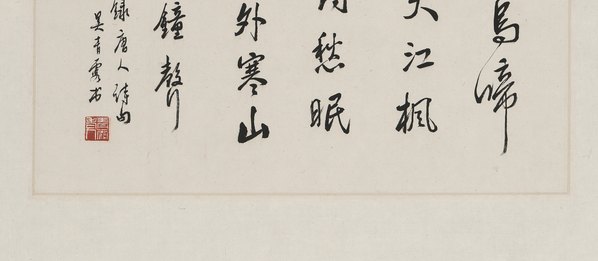 烏啼
天江楓
愁眠
外寒山
鐘聲
錄唐人詩句
吳青霞书